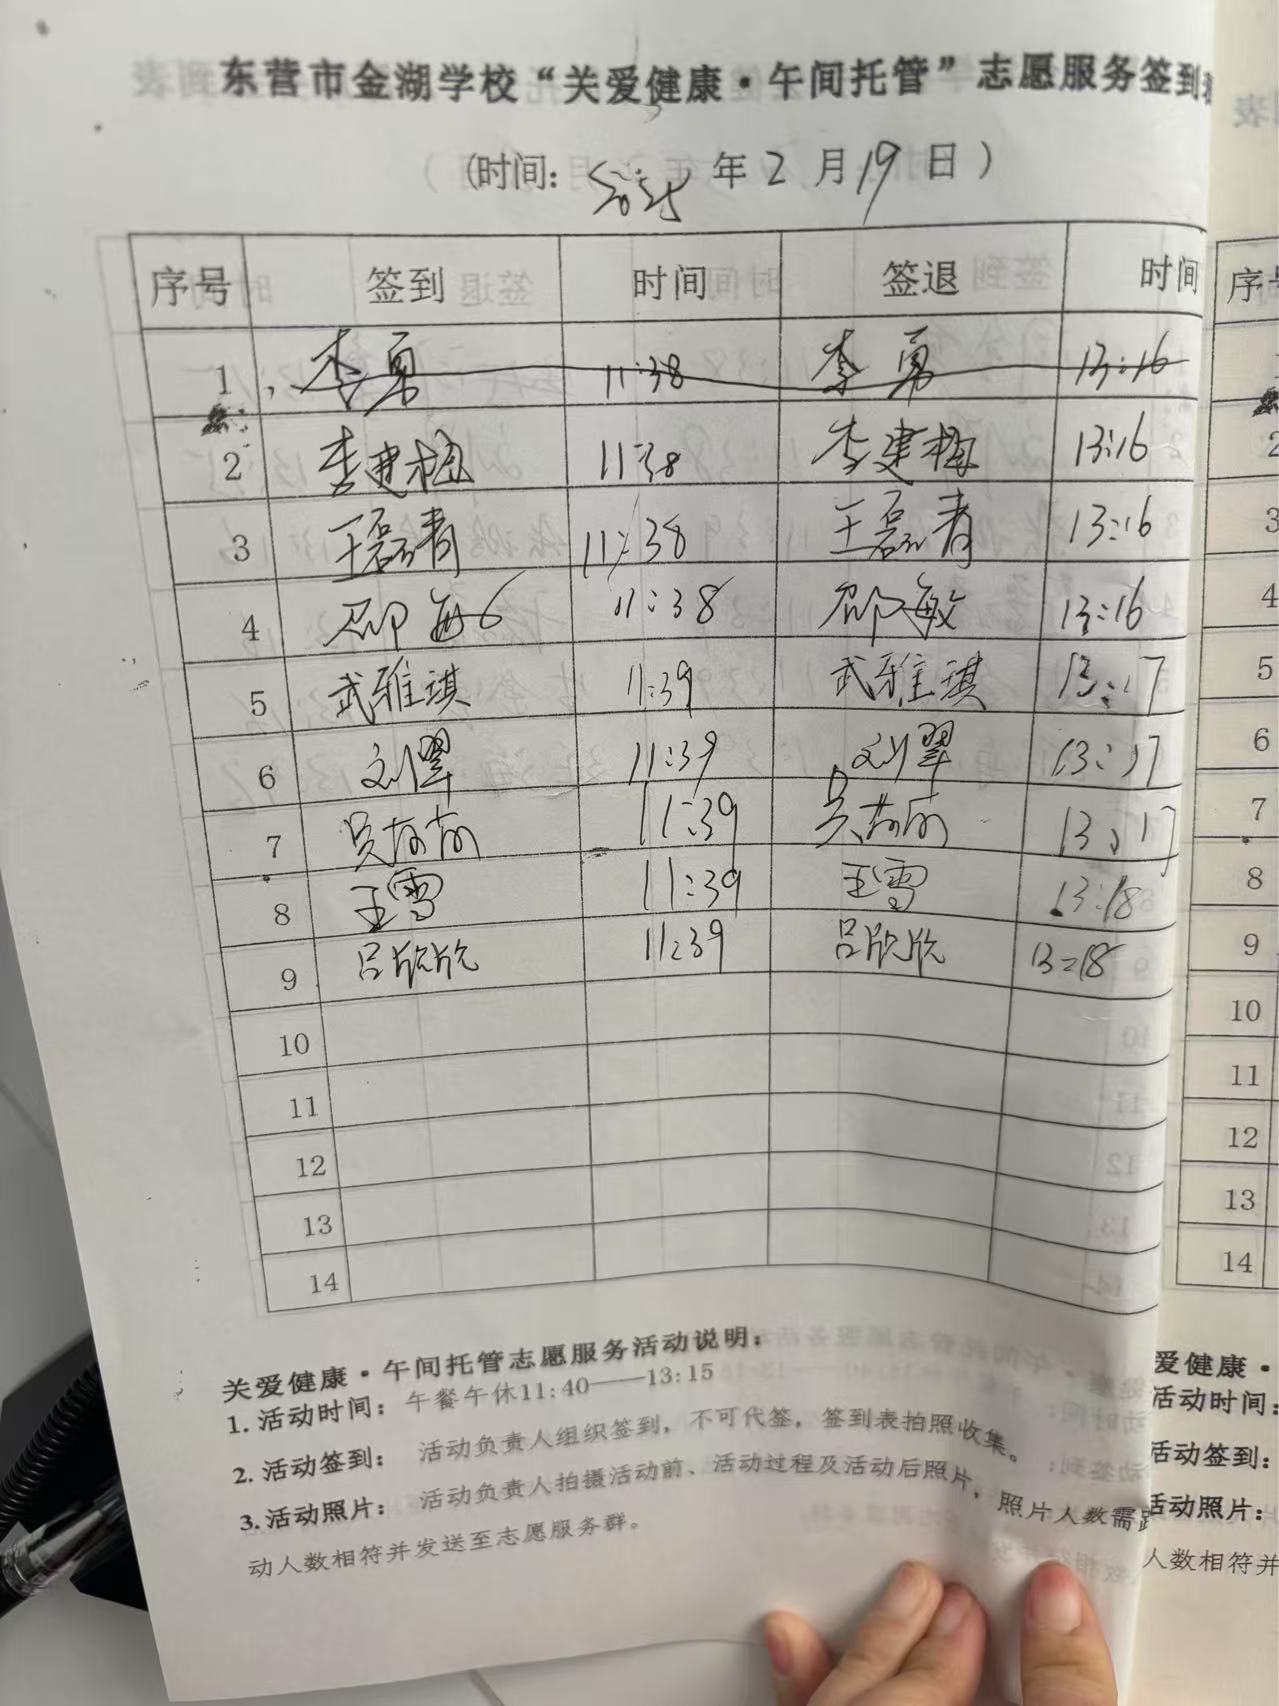 东营市金湖学校“关爱健康·午间托管”志愿服务签到
(时间: 2025 年 2 月 19 日 )
序号 签到 时间 签退 时间
1 李勇 11:38 李勇 13:16
2 李建梅 11:38 李建梅 13:16
3 王磊青 11:38 王磊青 13:16
4 邵敏 11:38 邵敏 13:16
5 武雅琪 11:39 武雅琪 13:17
6 刘翠 11:39 刘翠 13:17
7 吴 11:39 吴 13:17
8 王雪 11:39 王雪 13:18
9 吕欣欣 11:39 吕欣欣 13:18
10
11
12
13
14
关爱健康·午间托管志愿服务活动说明:
1.活动时间: 午餐午休11:40——13:15
2.活动签到: 活动负责人组织签到,不可代签,签到表拍照收集。
3.活动照片: 活动负责人拍摄活动前、活动过程及活动后照片,照片人数需
动人数相符并发送至志愿服务群。
表
序
2
3
4
5
6
7
8
9
10
11
12
13
14
爱健康·
活动时间:
活动签到:
活动照片:
人数相符并